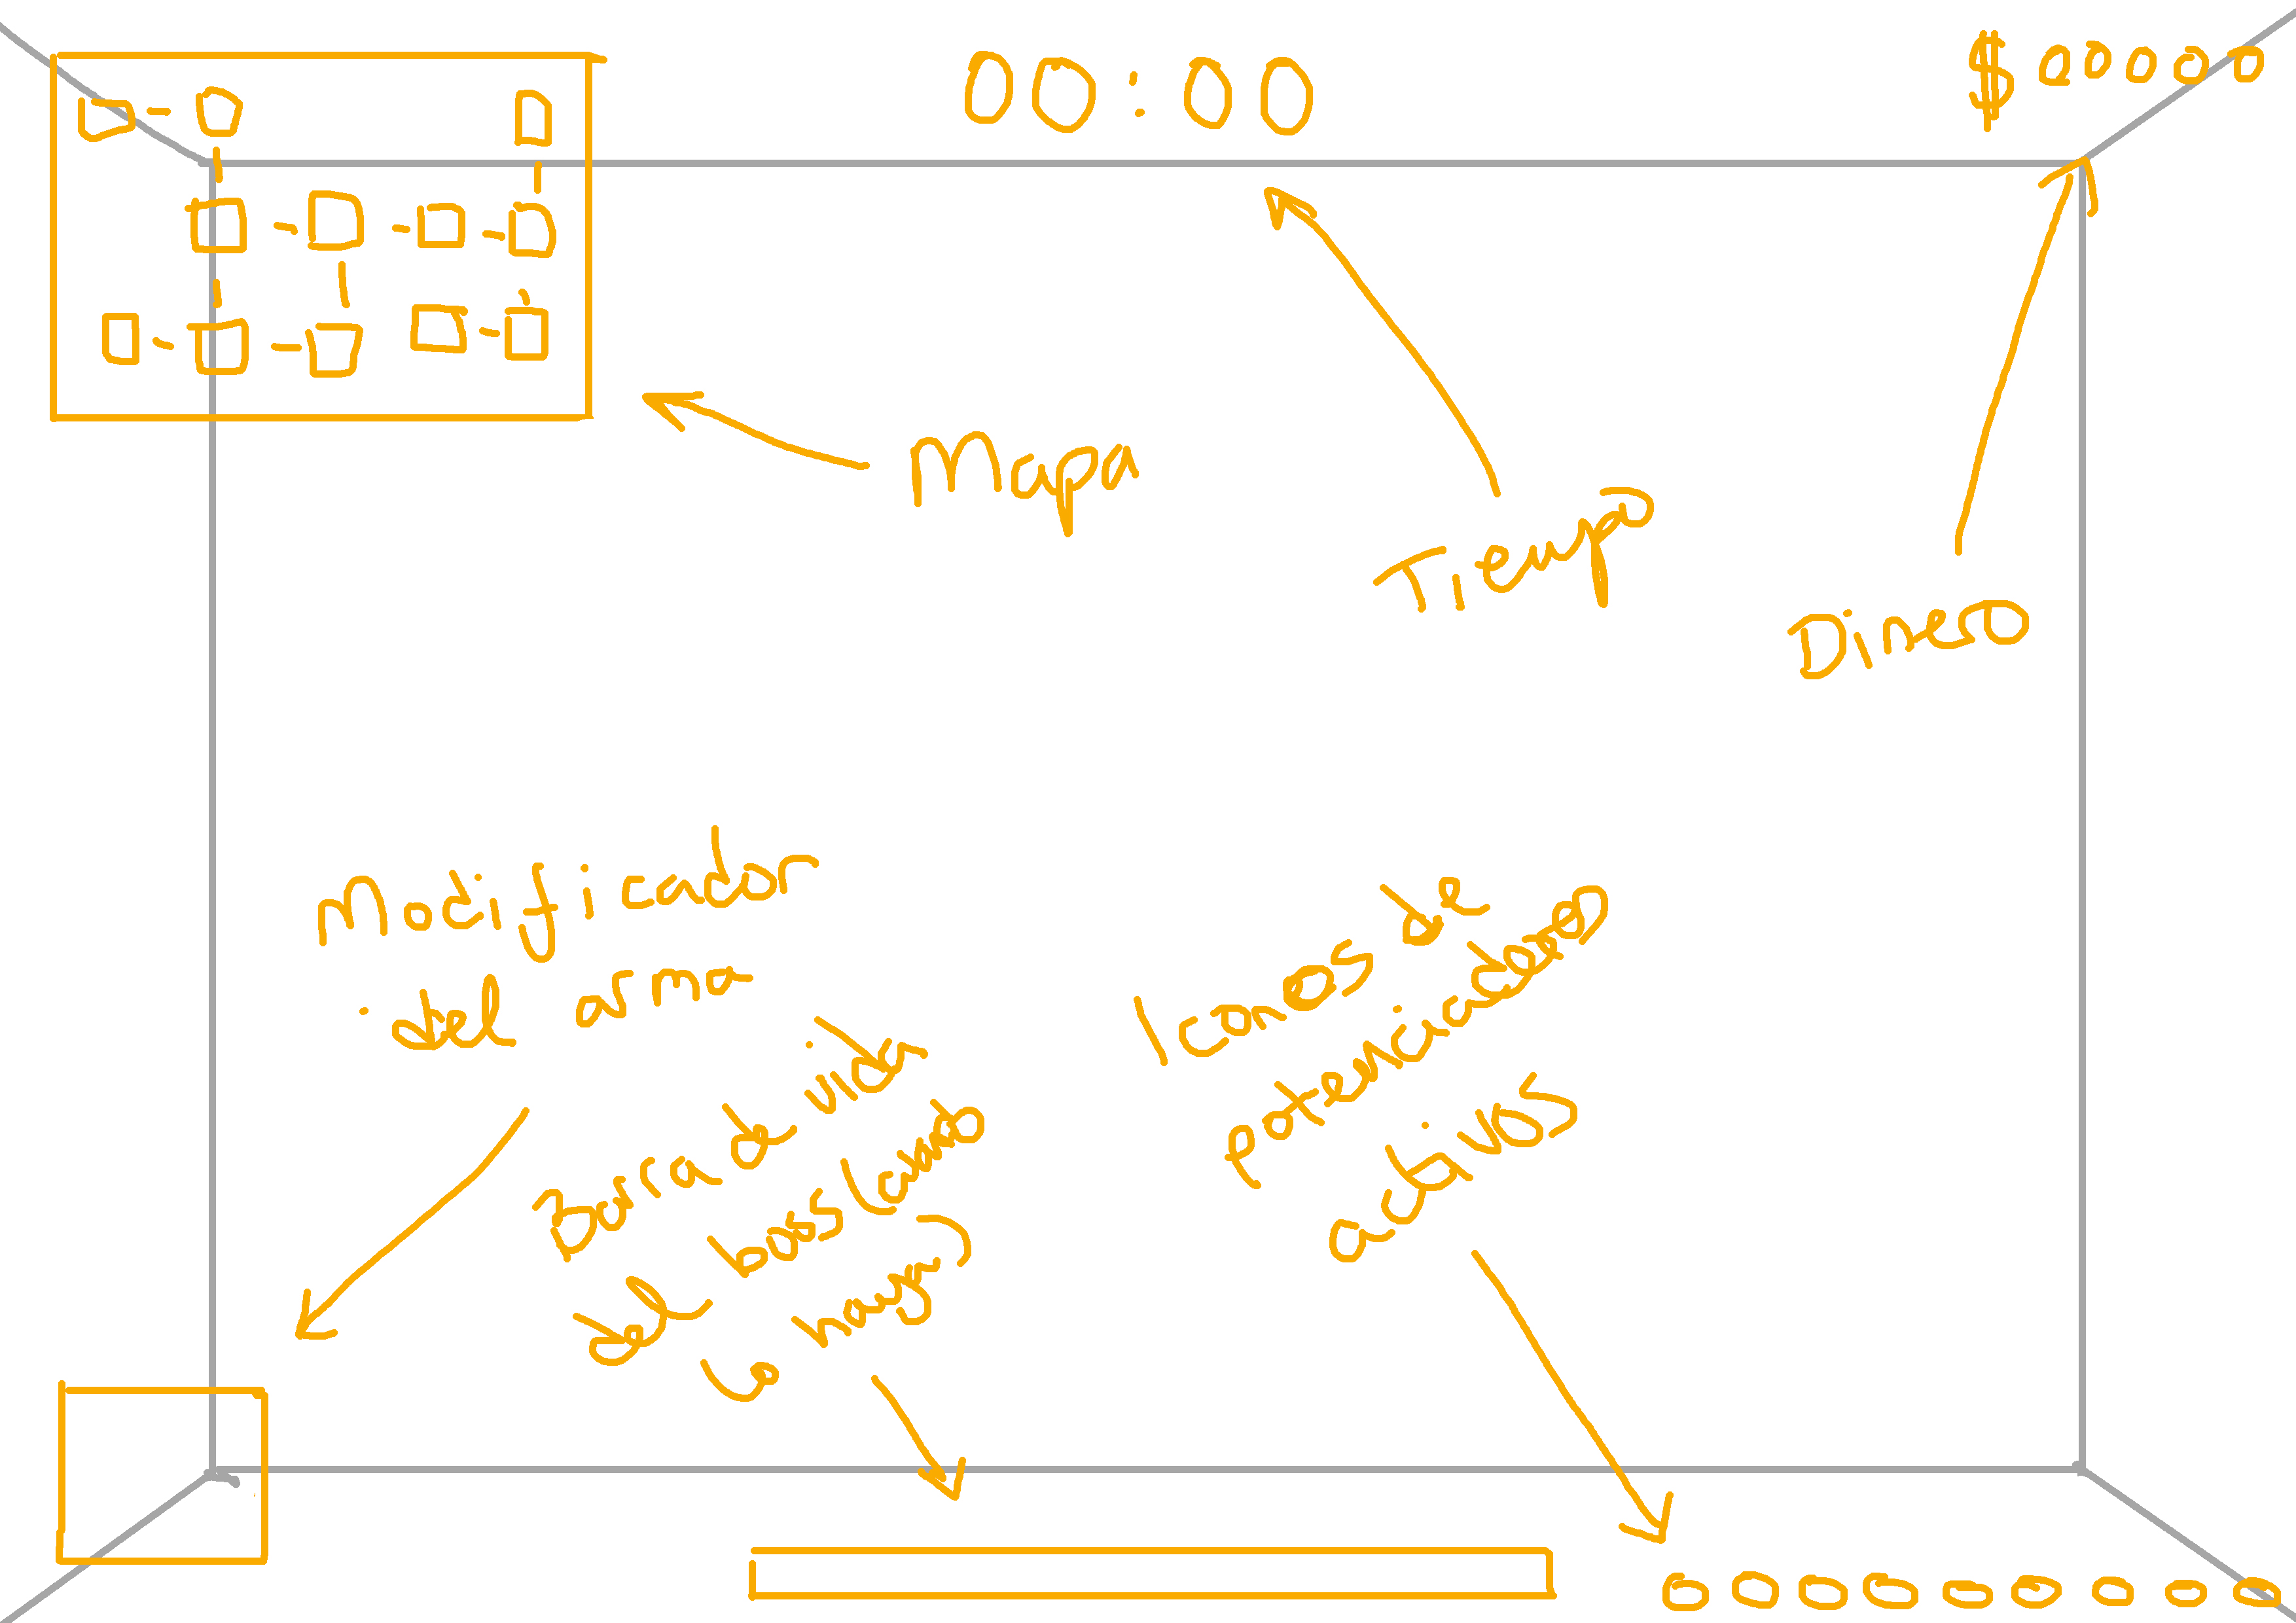 00:00
$ 00000
Mapa
Tiempo
Dinero
Modificador
del arma
Barra de vida
del boss (cuando
lo haya)
Iconos de
potenciadores
activos